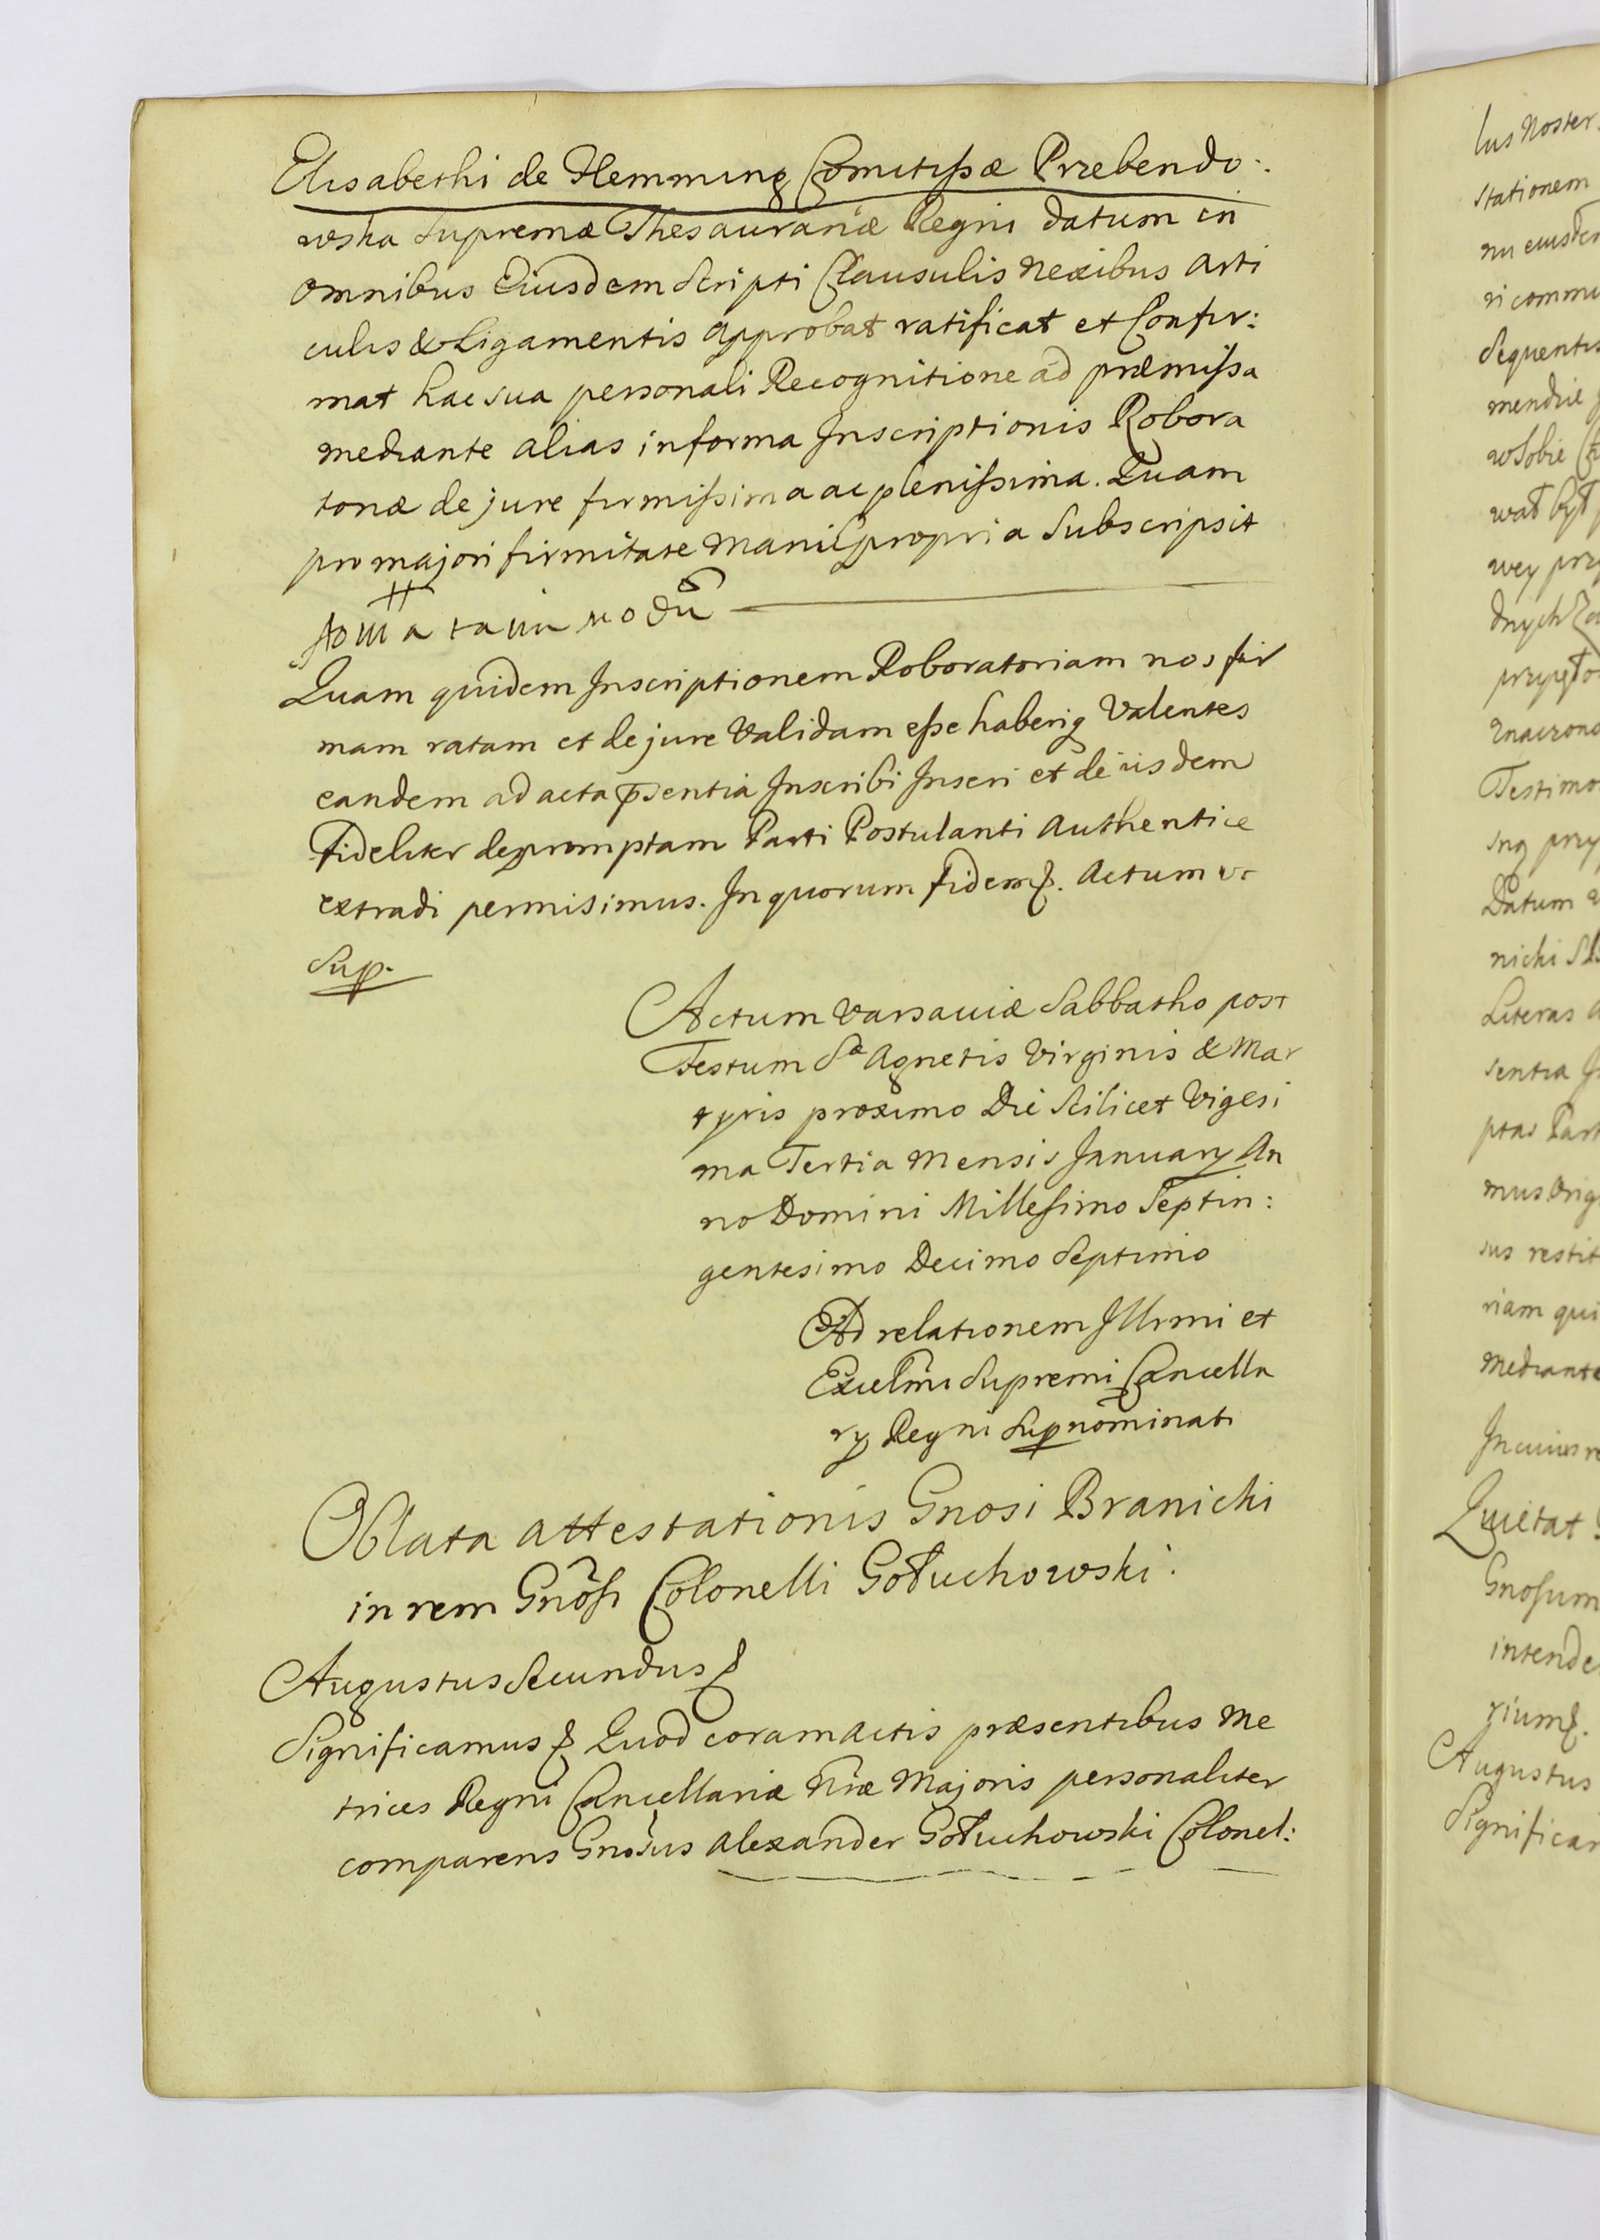 Elisabethi de Flemming Comitissæ Przebendo:
wska Supremæ Thesaurariæ Regni datum in
omnibus Eiusdem Scripti Clausulis Nexibus Arti
culis & Ligamentis approbat ratificat et Confir:
mat hac sua personali Recognitione ad præmissa
mediante alias in forma Inscriptionis Robora
toriæ de jure firmissima ac plenissima. Quam
pro majori firmitate manu propria Subscripsit
Quam quidem Inscriptionem Roboratoriam nos fir
mam ratam et de jure Validam esse haberiq Valentes
eandem ad acta pñsentia Inscribi Inseri et de iisdem
Fideliter depromptam Parti Postulanti Authentice
extradi permisimus. In quorum fidem &. Actum ut
Sup.
Actum Varsaviæ Sabbatho post
Festum Sæ Agnetis Virginis & Mar
tyris proximo Die Scilicet Vigesi
ma Tertia Mensis January An
no Domini Millesimo Septin:
gentesimo Decimo Septimo
Ad relationem Illrmi et
Excellmi Supremi Cancella
ry Regni Supnominati
Oblata attestationis Gnosi Branicki
in rem Gnosi Colonelli Gołuchowski.
Augustus Secundus &
Significamus & Quod coram Actis præsentibus Me
trices Regni Cancellariæ Nræ Majoris personaliter
comparens Gnosus Alexander Gołuchowski Colonel:
lus Noster
stationem
ri commu
Sequentis
wey
Testimo
Datum
nichi
Literas
sentia
ptas Part
mus Orig
sus restit
riam qui
Mediante
In cuius re
Quietat
Gnosum
intende
rium &.
Augustus
Significa